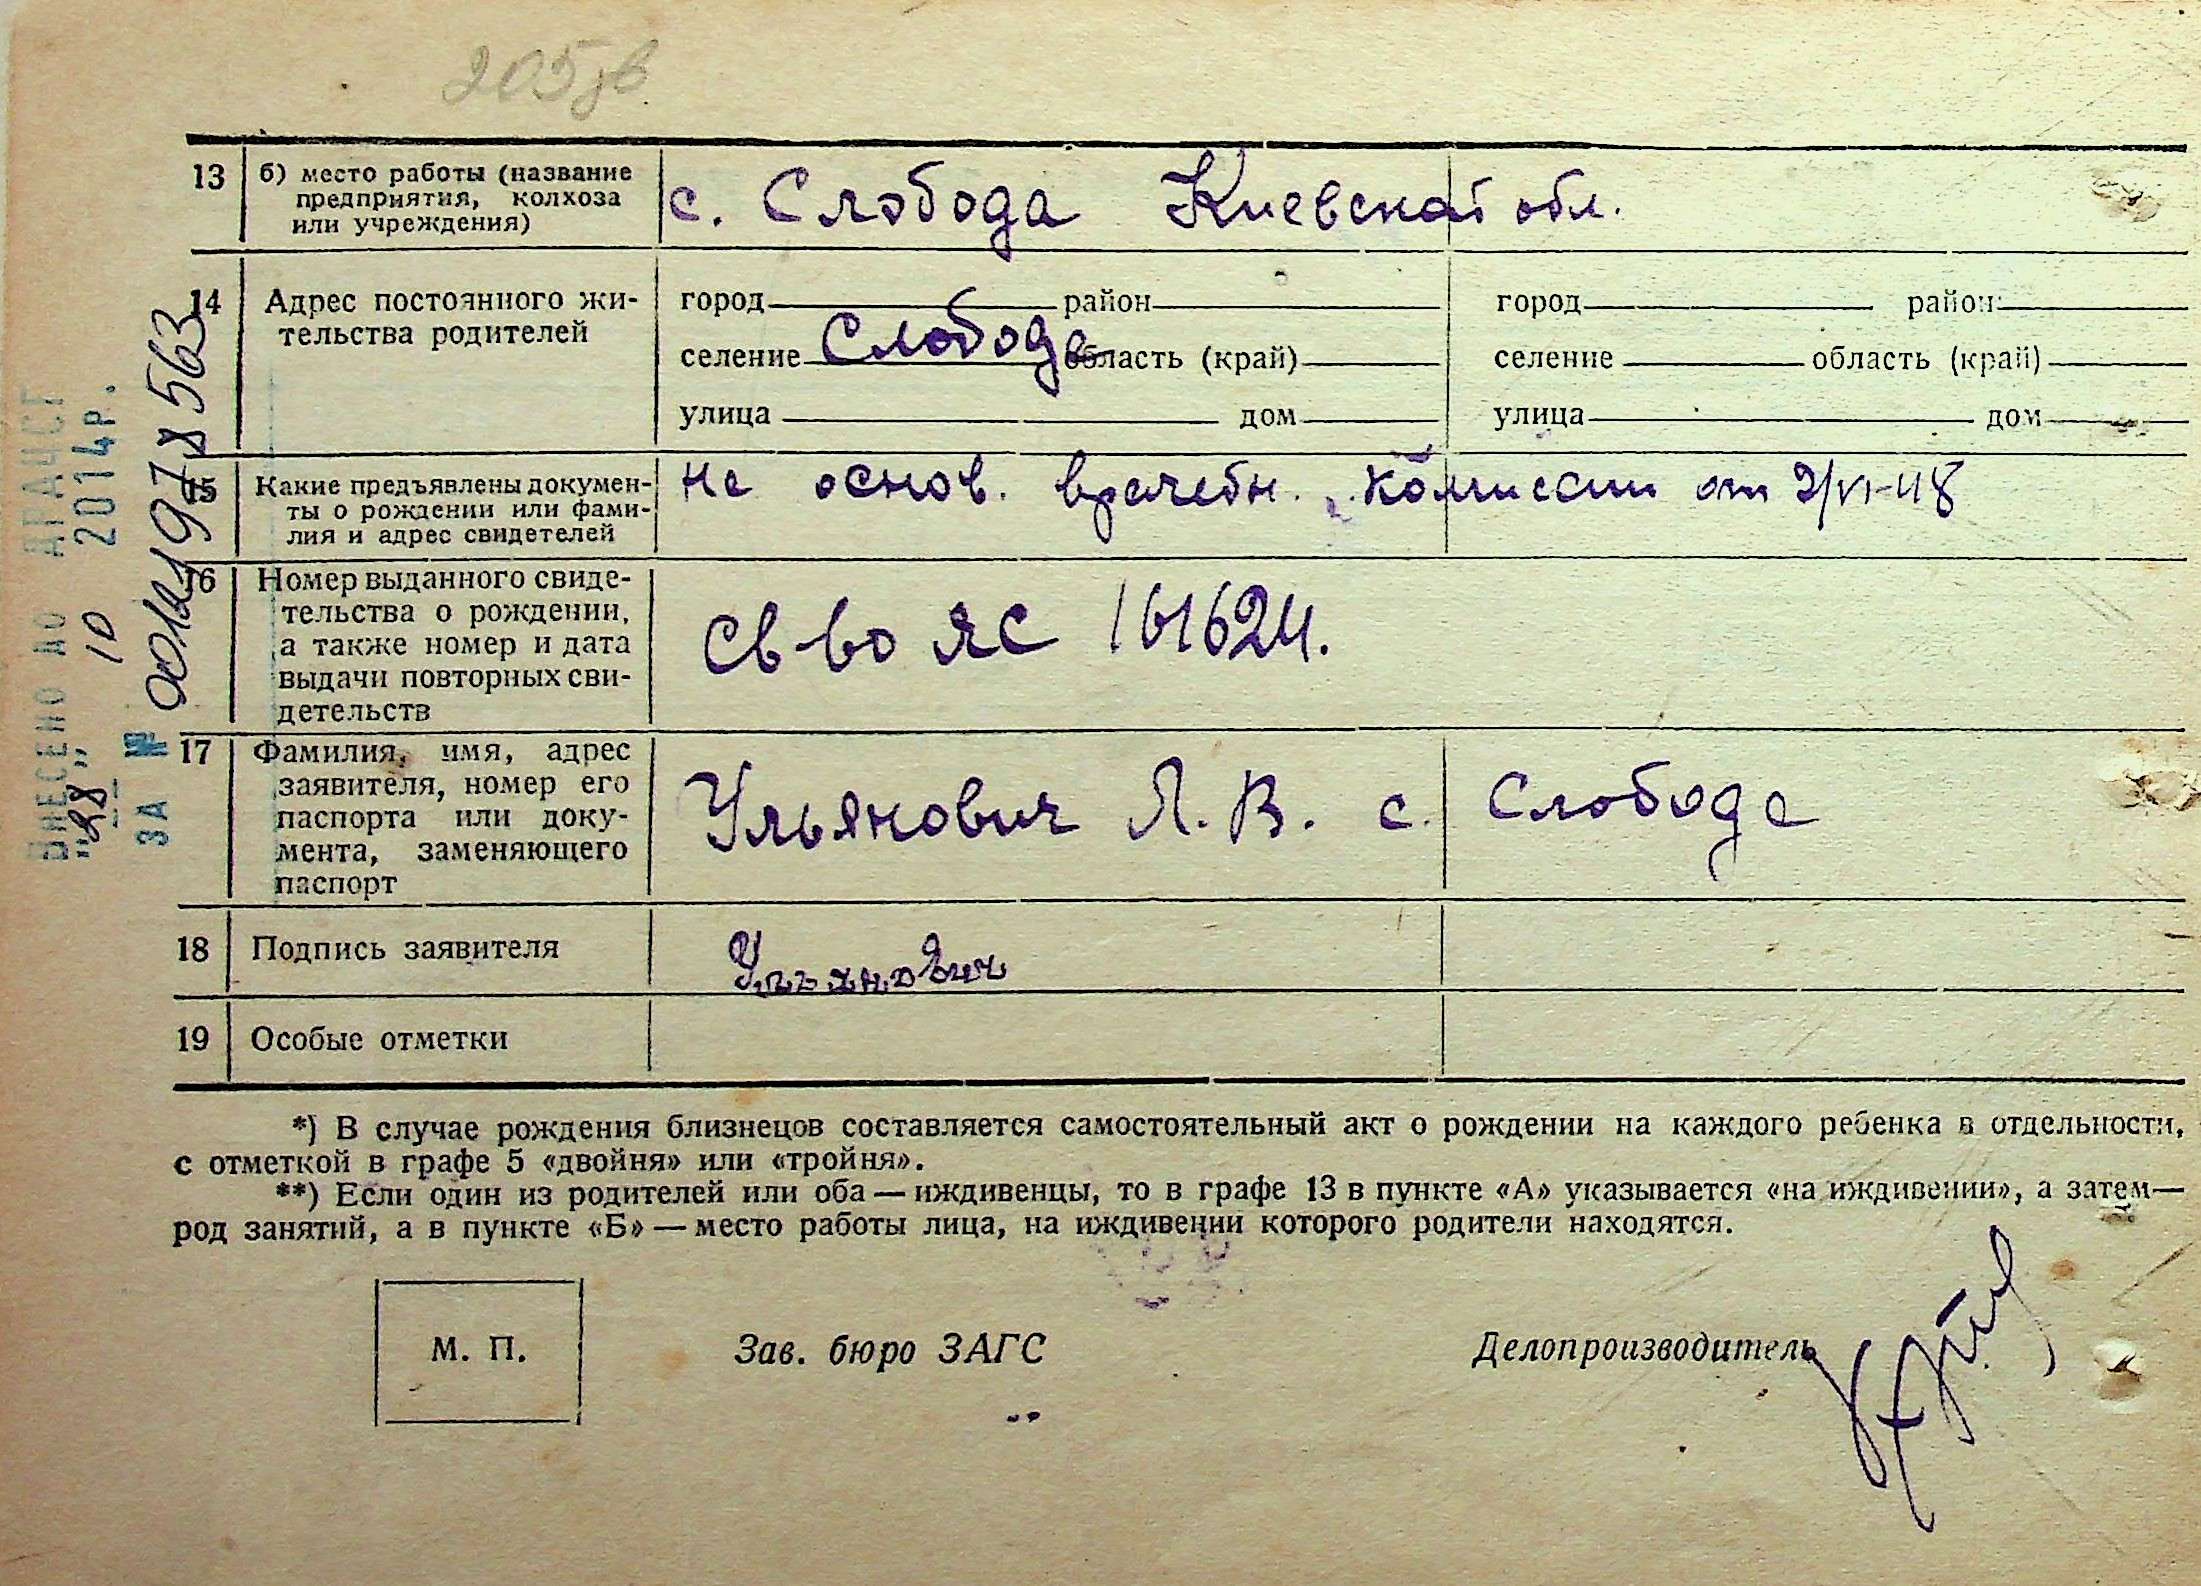 205зв
13 б) место работы (название
предприятия, колхоза
или учреждения)
с. Слобода Киевской обл.
14 Адрес постоянного жи-
тельства родителей
город район
селение Слобода область (край)
улица дом
город район
селение область (край)
улица дом
15 Какие предъявлены докумен-
ты о рождении или фами-
лия и адрес свидетелей
на основ. врачебн. комиссии от 2/VI-48
16 Номер выданного свиде-
тельства о рождении,
а также номер и дата
выдачи повторных сви-
детельств
св-во ЯС 161624.
17 Фамилия, имя, адрес
заявителя, номер его
паспорта или доку-
мента, заменяющего
паспорт
Ульянович Л. В. с. Слобода
18 Подпись заявителя
Ульянович
19 Особые отметки
*) В случае рождения близнецов составляется самостоятельный акт о рождении на каждого ребенка в отдельности,
с отметкой в графе 5 «двойня» или «тройня».
**) Если один из родителей или оба — иждивенцы, то в графе 13 в пункте «А» указывается «на иждивении», а затем—
род занятий, а в пункте «Б» — место работы лица, на иждивении которого родители находятся.
М. П.
Зав. бюро ЗАГС
Делопроизводитель
ВНЕСЕНО ДО ДРАЦСГ
"28" 10 2014р.
ЗА № 00121978563